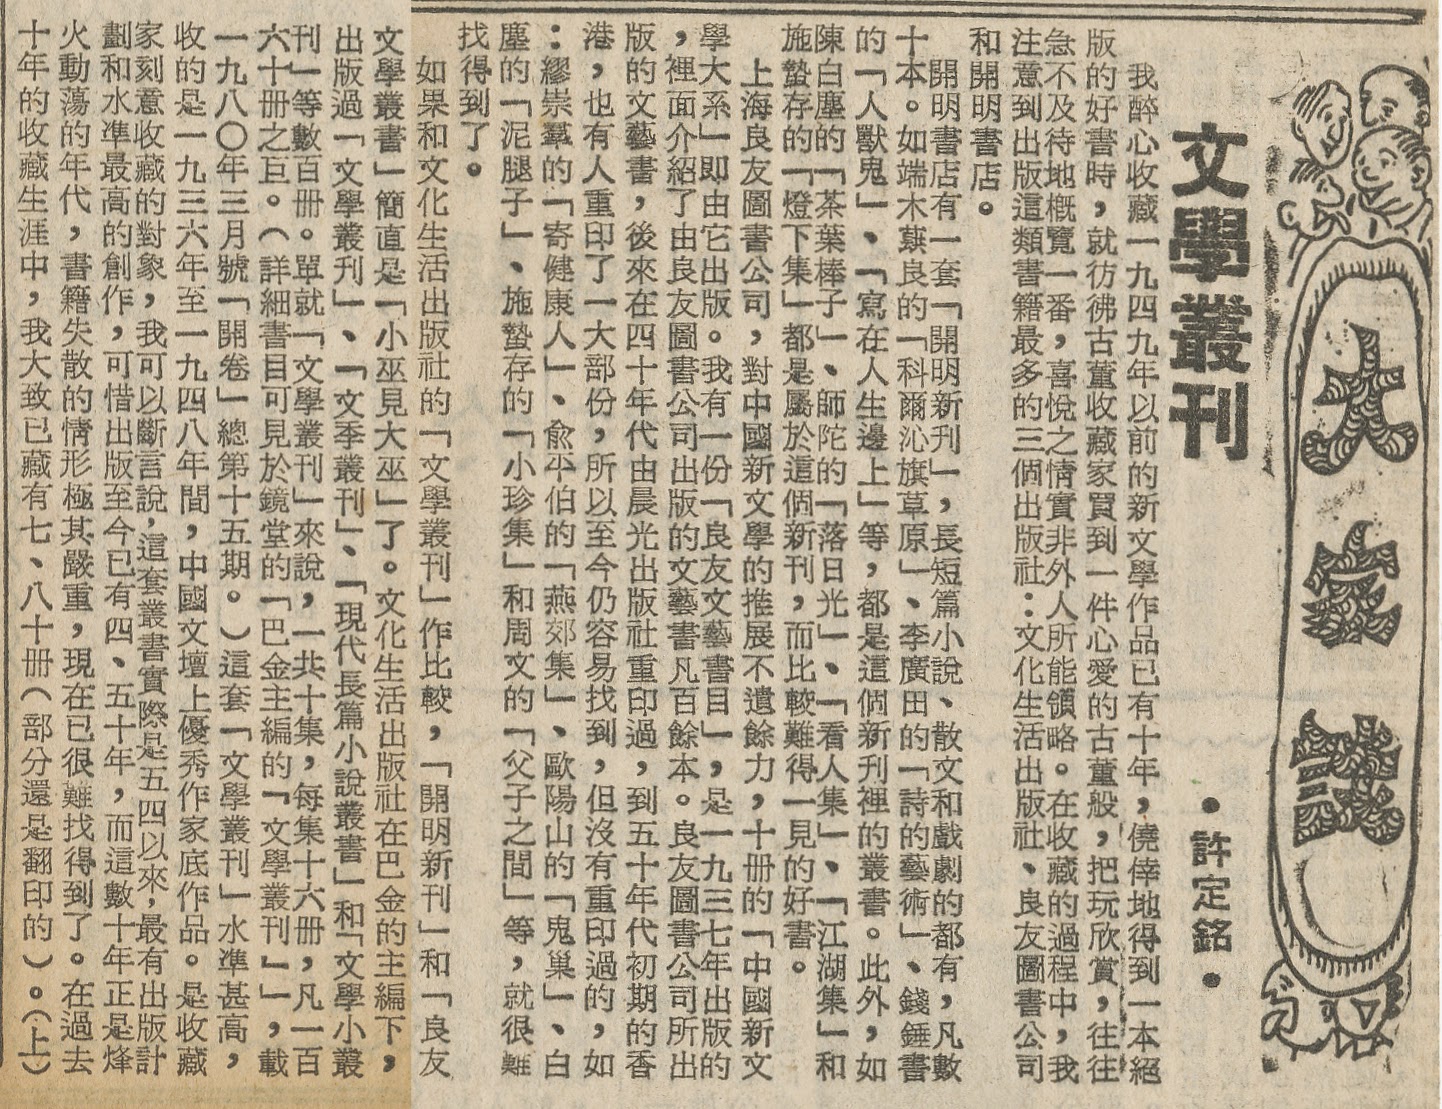 大拇指
文學叢刊
•許定銘•
我醉心收藏一九四九年以前的新文學作品已有十年，僥倖地得到一本絕
版的好書時，就彷彿古董收藏家買到一件心愛的古董般，把玩欣賞，往往
急不及待地概覽一番，喜悅之情實非外人所能領略。在收藏的過程中，我
注意到出版這類書籍最多的三個出版社：文化生活出版社、良友圖書公司
和開明書店。
開明書店有一套「開明新刊」，長短篇小說、散文和戲劇的都有，凡數
十本。如端木蕻良的「科爾沁旗草原」、李廣田的「詩的藝術」、錢鍾書
的「人獸鬼」、「寫在人生邊上」等，都是這個新刊裡的叢書。此外，如
陳白塵的「茶葉棒子」、師陀的「落日光」、「看人集」、「江湖集」和
施蟄存的「燈下集」都是屬於這個新刊，而比較難得一見的好書。
上海良友圖書公司，對中國新文學的推展不遺餘力，十册的「中國新文
學大系」即由它出版。我有一份「良友文藝書目」，是一九三七年出版的
，裡面介紹了由良友圖書公司出版的文藝書凡百餘本。良友圖書公司所出
版的文藝書，後來在四十年代由晨光出版社重印過，到五十年代初期的香
港，也有人重印了一大部份，所以至今仍容易找到，但沒有重印過的，如
：繆崇羣的「寄健康人」、俞平伯的「燕郊集」、歐陽山的「鬼巢」、白
塵的「泥腿子」、施蟄存的「小珍集」和周文的「父子之間」等，就很難
找得到了。
如果和文化生活出版社的「文學叢刊」作比較，「開明新刊」和「良友
文學叢書」簡直是「小巫見大巫」了。文化生活出版社在巴金的主編下，
出版過「文學叢刊」、「文季叢刊」、「現代長篇小說叢書」和「文學小叢
刊」等數百册。單就「文學叢刊」來說，一共十集，每集十六册，凡一百
六十册之巨。（詳細書目可見於鏡堂的「巴金主編的『文學叢刊』」，載
一九八〇年三月號「開卷」總第十五期。）這套「文學叢刊」水準甚高，
收的是一九三六年至一九四八年間，中國文壇上優秀作家底作品。是收藏
家刻意收藏的對象，我可以斷言說，這套叢書實際是五四以來，最有出版計
劃和水準最高的創作，可惜出版至今已有四、五十年，而這數十年正是烽
火動蕩的年代，書籍失散的情形極其嚴重，現在已很難找得到了。在過去
十年的收藏生涯中，我大致已藏有七、八十册（部分還是翻印的）。（上）